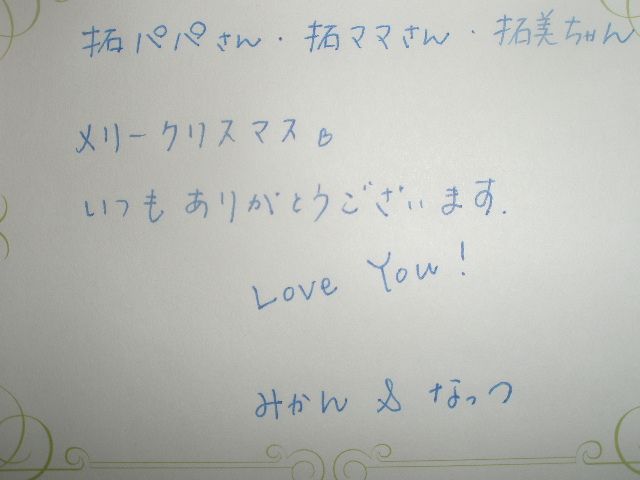 拓パパさん・拓ママさん・拓美ちゃん
メリークリスマス。
いつもありがとうございます.
Love You!
みかん & なっつ